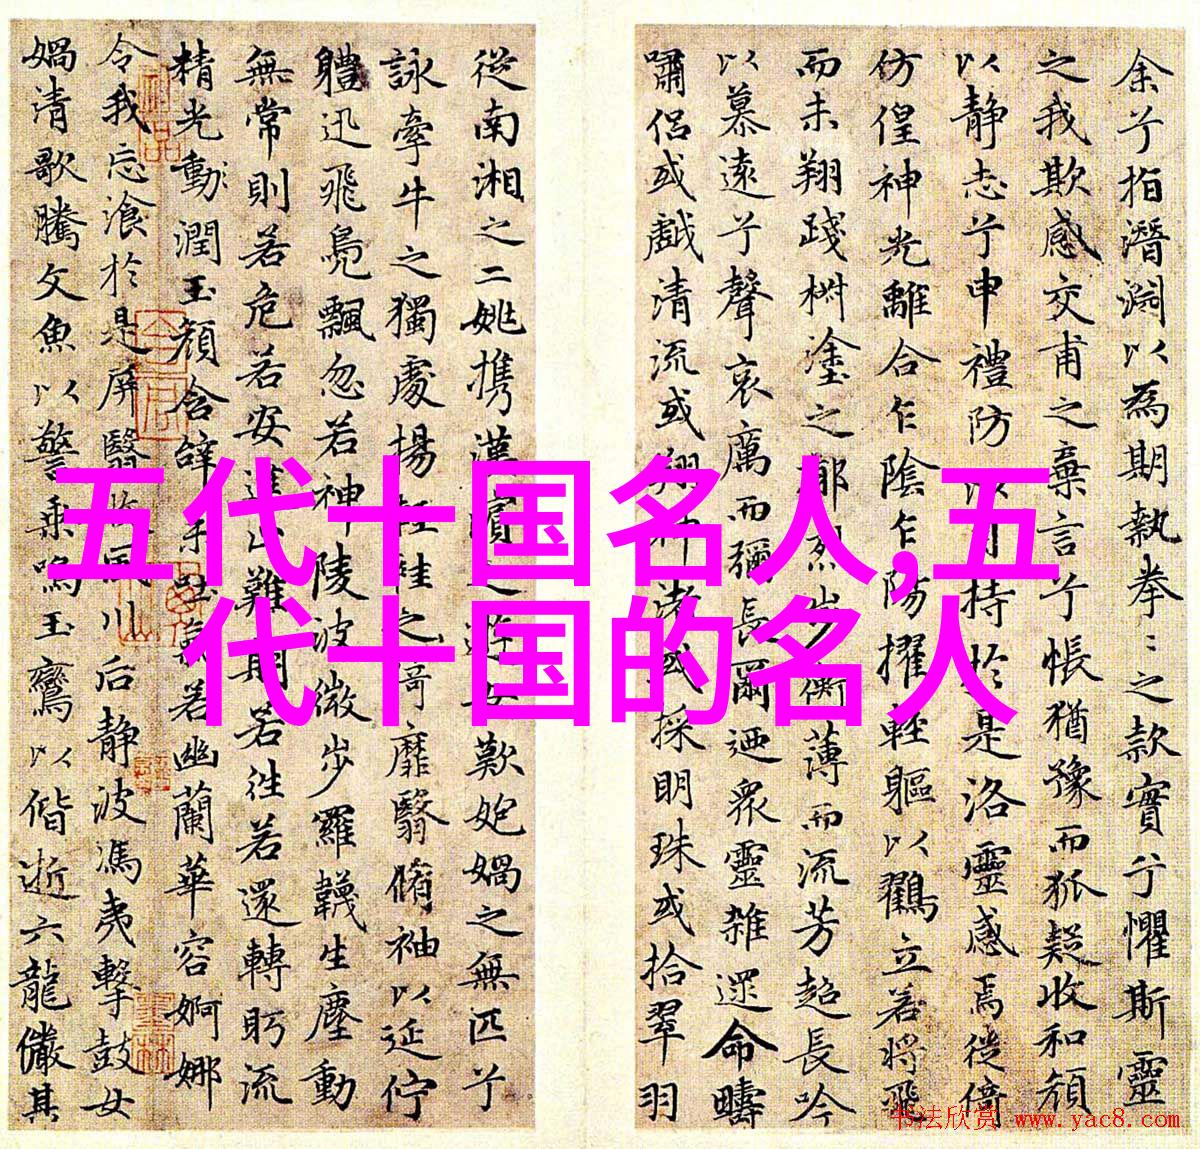 余兮指潛淵以為期執拳〻之款實兮懼斯靈
之我欺感交甫之棄言兮悵猶豫而狐疑收和顏
以静志兮申禮防以自持於是洛靈感焉徙倚
仿偟神光離合乍陰乍陽擢輕軀以鶴立若將飛
而未翔踐椒塗之郁烈步蘅薄而流芳超長吟
以慕遠兮聲哀厲而彌長爾迺衆靈雜遝命疇
嘯侶或戲清流或翔神渚或採明珠或拾翠羽
從南湘之二姚攜漢濱之遊女歎匏媧之無匹兮
詠牽牛之獨處揚輕袿之猗靡翳脩袖以延佇
體迅飛鳧飄忽若神陵波微步羅韈生塵動
無常則若危若安進止難期若往若還轉眄流
精光動潤玉顏含辭未吐氣若幽蘭華容婀娜
令我忘飡於是屏翳收風川后静波馮夷擊鼓女
媧清歌騰文魚以警乘鳴玉鸞以偕逝六龍儼其
五代十国名人,五
代十国的名人
书法欣赏 www.yac8.com